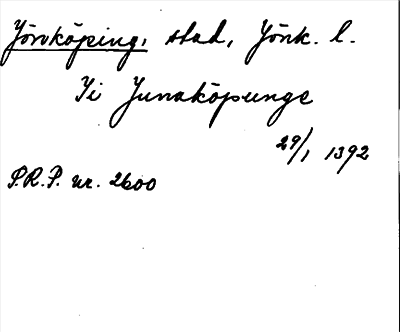 Jönköping, stad, Jönk. l.
Yi Junaköpunge
29/1 1392
P.R.P. nr. 2600